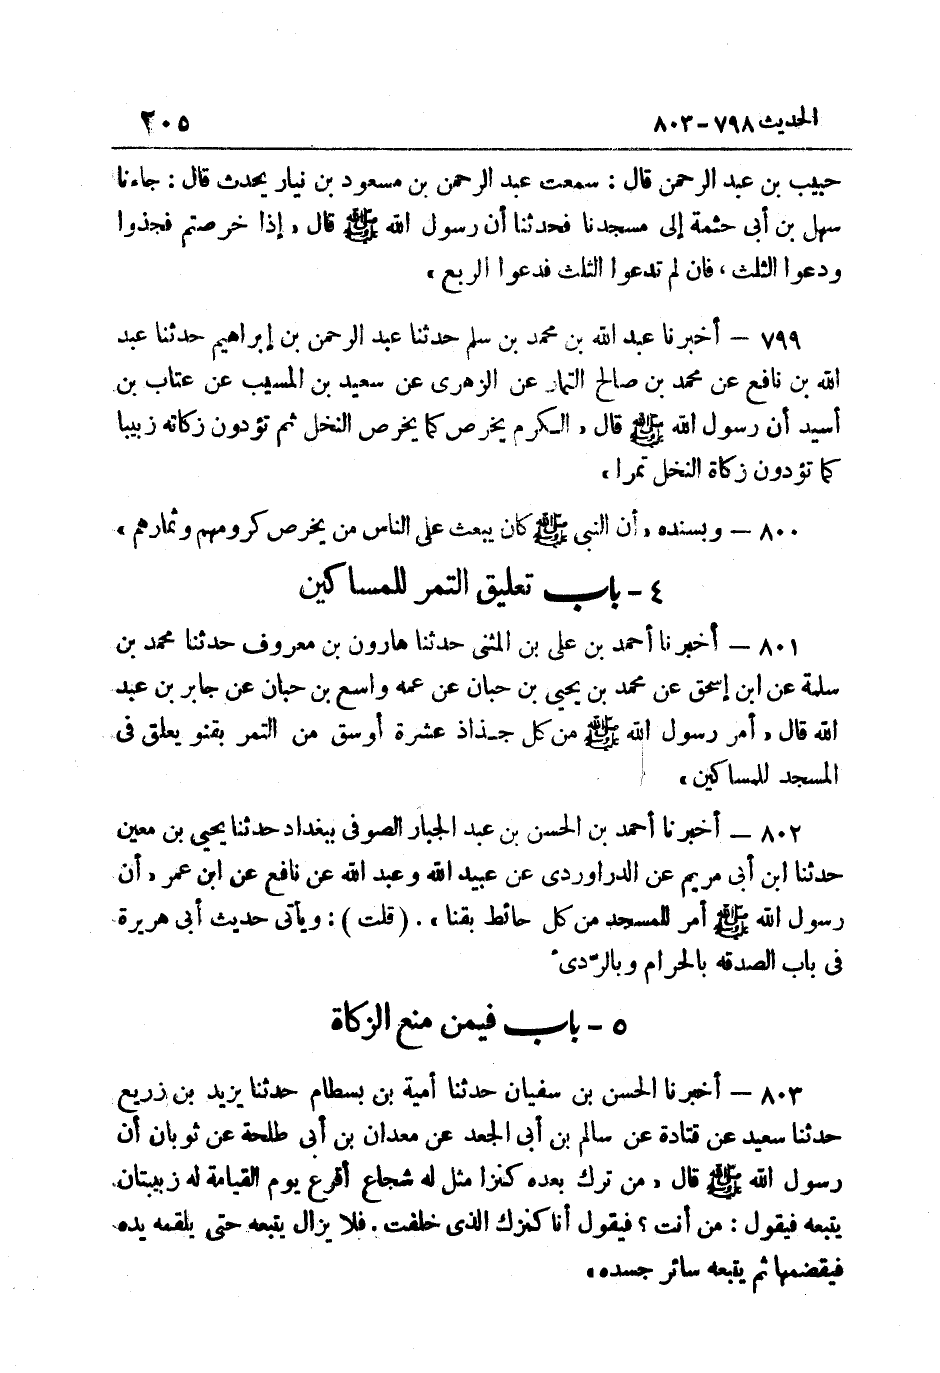 الحديث ٧٩٨ - ٨٠٣ ٢٠٥
حبيب بن عبد الرحمن قال : سمعت عبد الرحمن بن مسعود بن نيار يحدث قال : جاءنا
سهل بن أبى حثمة إلى مسجدنا فحدثنا أن رسول الله ﷺ قال « إذا خرصتم فجذوا
ودعوا الثلث ، فان لم تدعوا الثلث فدعوا الربع »
٧٩٩ — أخبرنا عبد الله بن محمد بن سلم حدثنا عبد الرحمن بن إبراهيم حدثنا عبد
الله بن نافع عن محمد بن صالح التمار عن الزهرى عن سعيد بن المسيب عن عتاب بن
أسيد أن رسول الله ﷺ قال « الكرم يخرص كما يخرص النخل ثم تؤدون زكاته زبيبا
كما تؤدون زكاة النخل تمرا »
٨٠٠ — وبسنده « أن النبى ﷺ كان يبعث على الناس من يخرص كرومهم وثمارهم »
٤ - باب تعليق التمر للمساكين
٨٠١ — أخبرنا أحمد بن على بن المثنى حدثنا هارون بن معروف حدثنا محمد بن
سلمة عن ابن إسحق عن محمد بن يحيى بن حبان عن عمه واسع بن حبان عن جابر بن عبد
الله قال « أمر رسول الله ﷺ من كل جذاذ عشرة أوسق من التمر بقنو يعلق فى
المسجد للمساكين »
٨٠٢ — أخبرنا أحمد بن الحسن بن عبد الجبار الصوفى ببغداد حدثنا يحيى بن معين
حدثنا ابن أبى مريم عن الدراوردى عن عبيد الله وعبد الله عن نافع عن ابن عمر « أن
رسول الله ﷺ أمر للمسجد من كل حائط بقنا » . ( قلت ) : ويأتى حديث أبى هريرة
فى باب الصدقه بالحرام وبالرّدىء
٥ - باب فيمن منع الزكاة
٨٠٣ — أخبرنا الحسن بن سفيان حدثنا أمية بن بسطام حدثنا يزيد بن زريع
حدثنا سعيد عن قتادة عن سالم بن أبى الجعد عن معدان بن أبى طلحة عن ثوبان أن
رسول الله ﷺ قال « من ترك بعده كنزا مثل له شجاع أقرع يوم القيامة له زبيبتان
يتبعه فيقول : من أنت ؟ فيقول أنا كنزك الذى خلفت . فلا يزال يتبعه حتى يلقمه يده
فيقضمها ثم يتبعه سائر جسده »